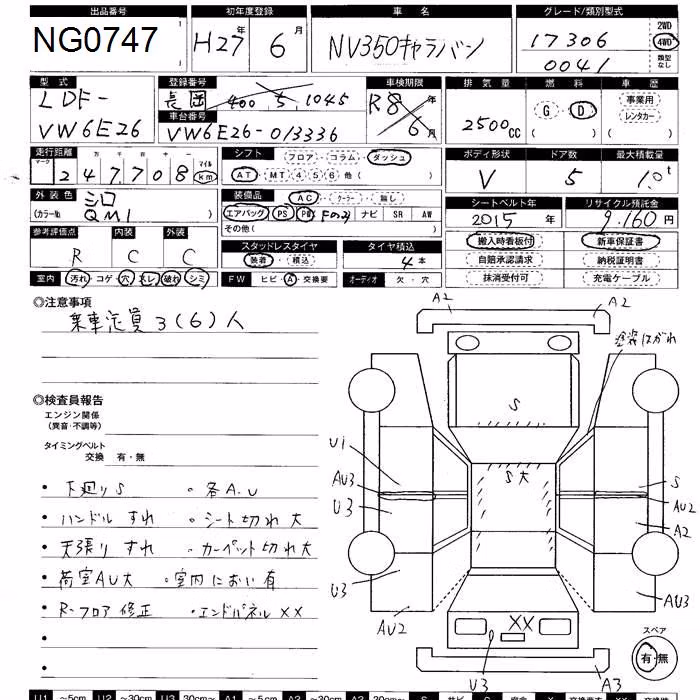 出品番号 初年度登録 車名 グレード/類別型式
NG0747 H27年 6月 NV350キャラバン 17306 2WD 4WD
0041 類型なし
型式 登録番号 車検期限 排気量 燃料 車歴
LDF- 長岡 400 さ 1045 R8年 2500cc G・D 事業用
車台番号 レンタカー
VW6E26 VW6E26-013336 6月 ( ) ( )
走行距離 シフト フロア・コラム・ダッシュ ボディ形状 ドア数 最大積載量
マーク 十万 万 千 百 十 一 マイル
247,708 km AT・MT 4 5 6 他( ) V 5 1.0t
外装色 シロ 装備品 AC・クーラー・無し シートベルト年 リサイクル預託金
(カラーNo. QM1 ) エアバッグ PS PW Fのみ ナビ SR AW 2015年 9,160円
参考評価点 内装 外装 その他( ) 搬入時看板付 新車保証書
R C C スタッドレスタイヤ タイヤ積込 自賠承認請求 納税証明書
装着・積込 4本 抹消受付可 充電ケーブル
室内 汚れ・コゲ・穴・スレ・破れ・シミ FW ヒビ・A・交換要 オーディオ 欠・穴
◎注意事項
乗車定員3(6)人
◎検査員報告
エンジン関係
(異音・不調等)
タイミングベルト
交換 有・無
・下廻りS ・各A.U
・ハンドルすれ ・シート切れ大
・天張りすれ ・カーペット切れ大
・荷室AU大 ・室内におい有
・R-フロア修正 ・エンドパネルXX
A2 A2
塗装はがれ
S
U1 S大 S
AU3 AU2
U3 A2
U3 AU3
AU2 XX
U3 A3
スペア
有・無
U1 ~5cm U2 ~30cm U3 30cm~ A1 ~5cm A2 ~30cm A3 30cm~ S サビ